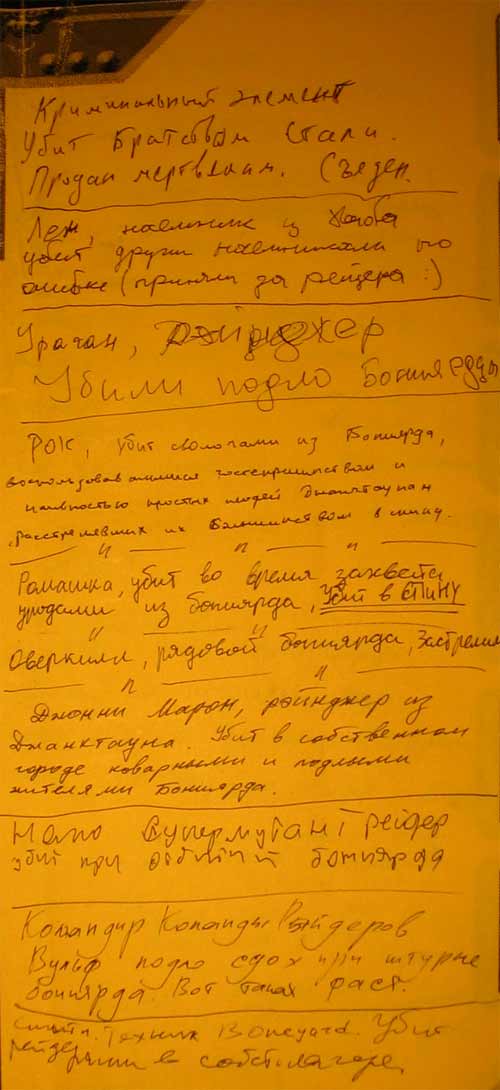 Криминальный элемент
Убит Братством Стали.
Продан мертвецам. Съеден.
Лен, наемник из Хаба
убит други наемниками по
ошибке (приняли за рейдера :)
Ураган, рэйнджер
Убили подло Бониярдцы
Рок, убит сволочами из Бонярда,
воспользовавшимися гостеприимством и
наивностью простых людей Джанктауна и
расстрелявших их большинством в спину.
Ромашка, убит во время захвата
уродами из бонярда, Убит в СПИНУ
Оверкилл, рядовой бонярда, Застрелил
Джонни Марон, рэйнджер из
Джанктауна. Убит в собственном
городе коварными и подлыми
жителями Бонярда.
Супермутант Рейдер
убит при бонярда
Командир Команды Рэйдеров
Вульф подло сдох при штурме
бонярда. Вот такая фаст.
Смитти. Техник Boneyard. Убит
рейдерами в собст. лагере.